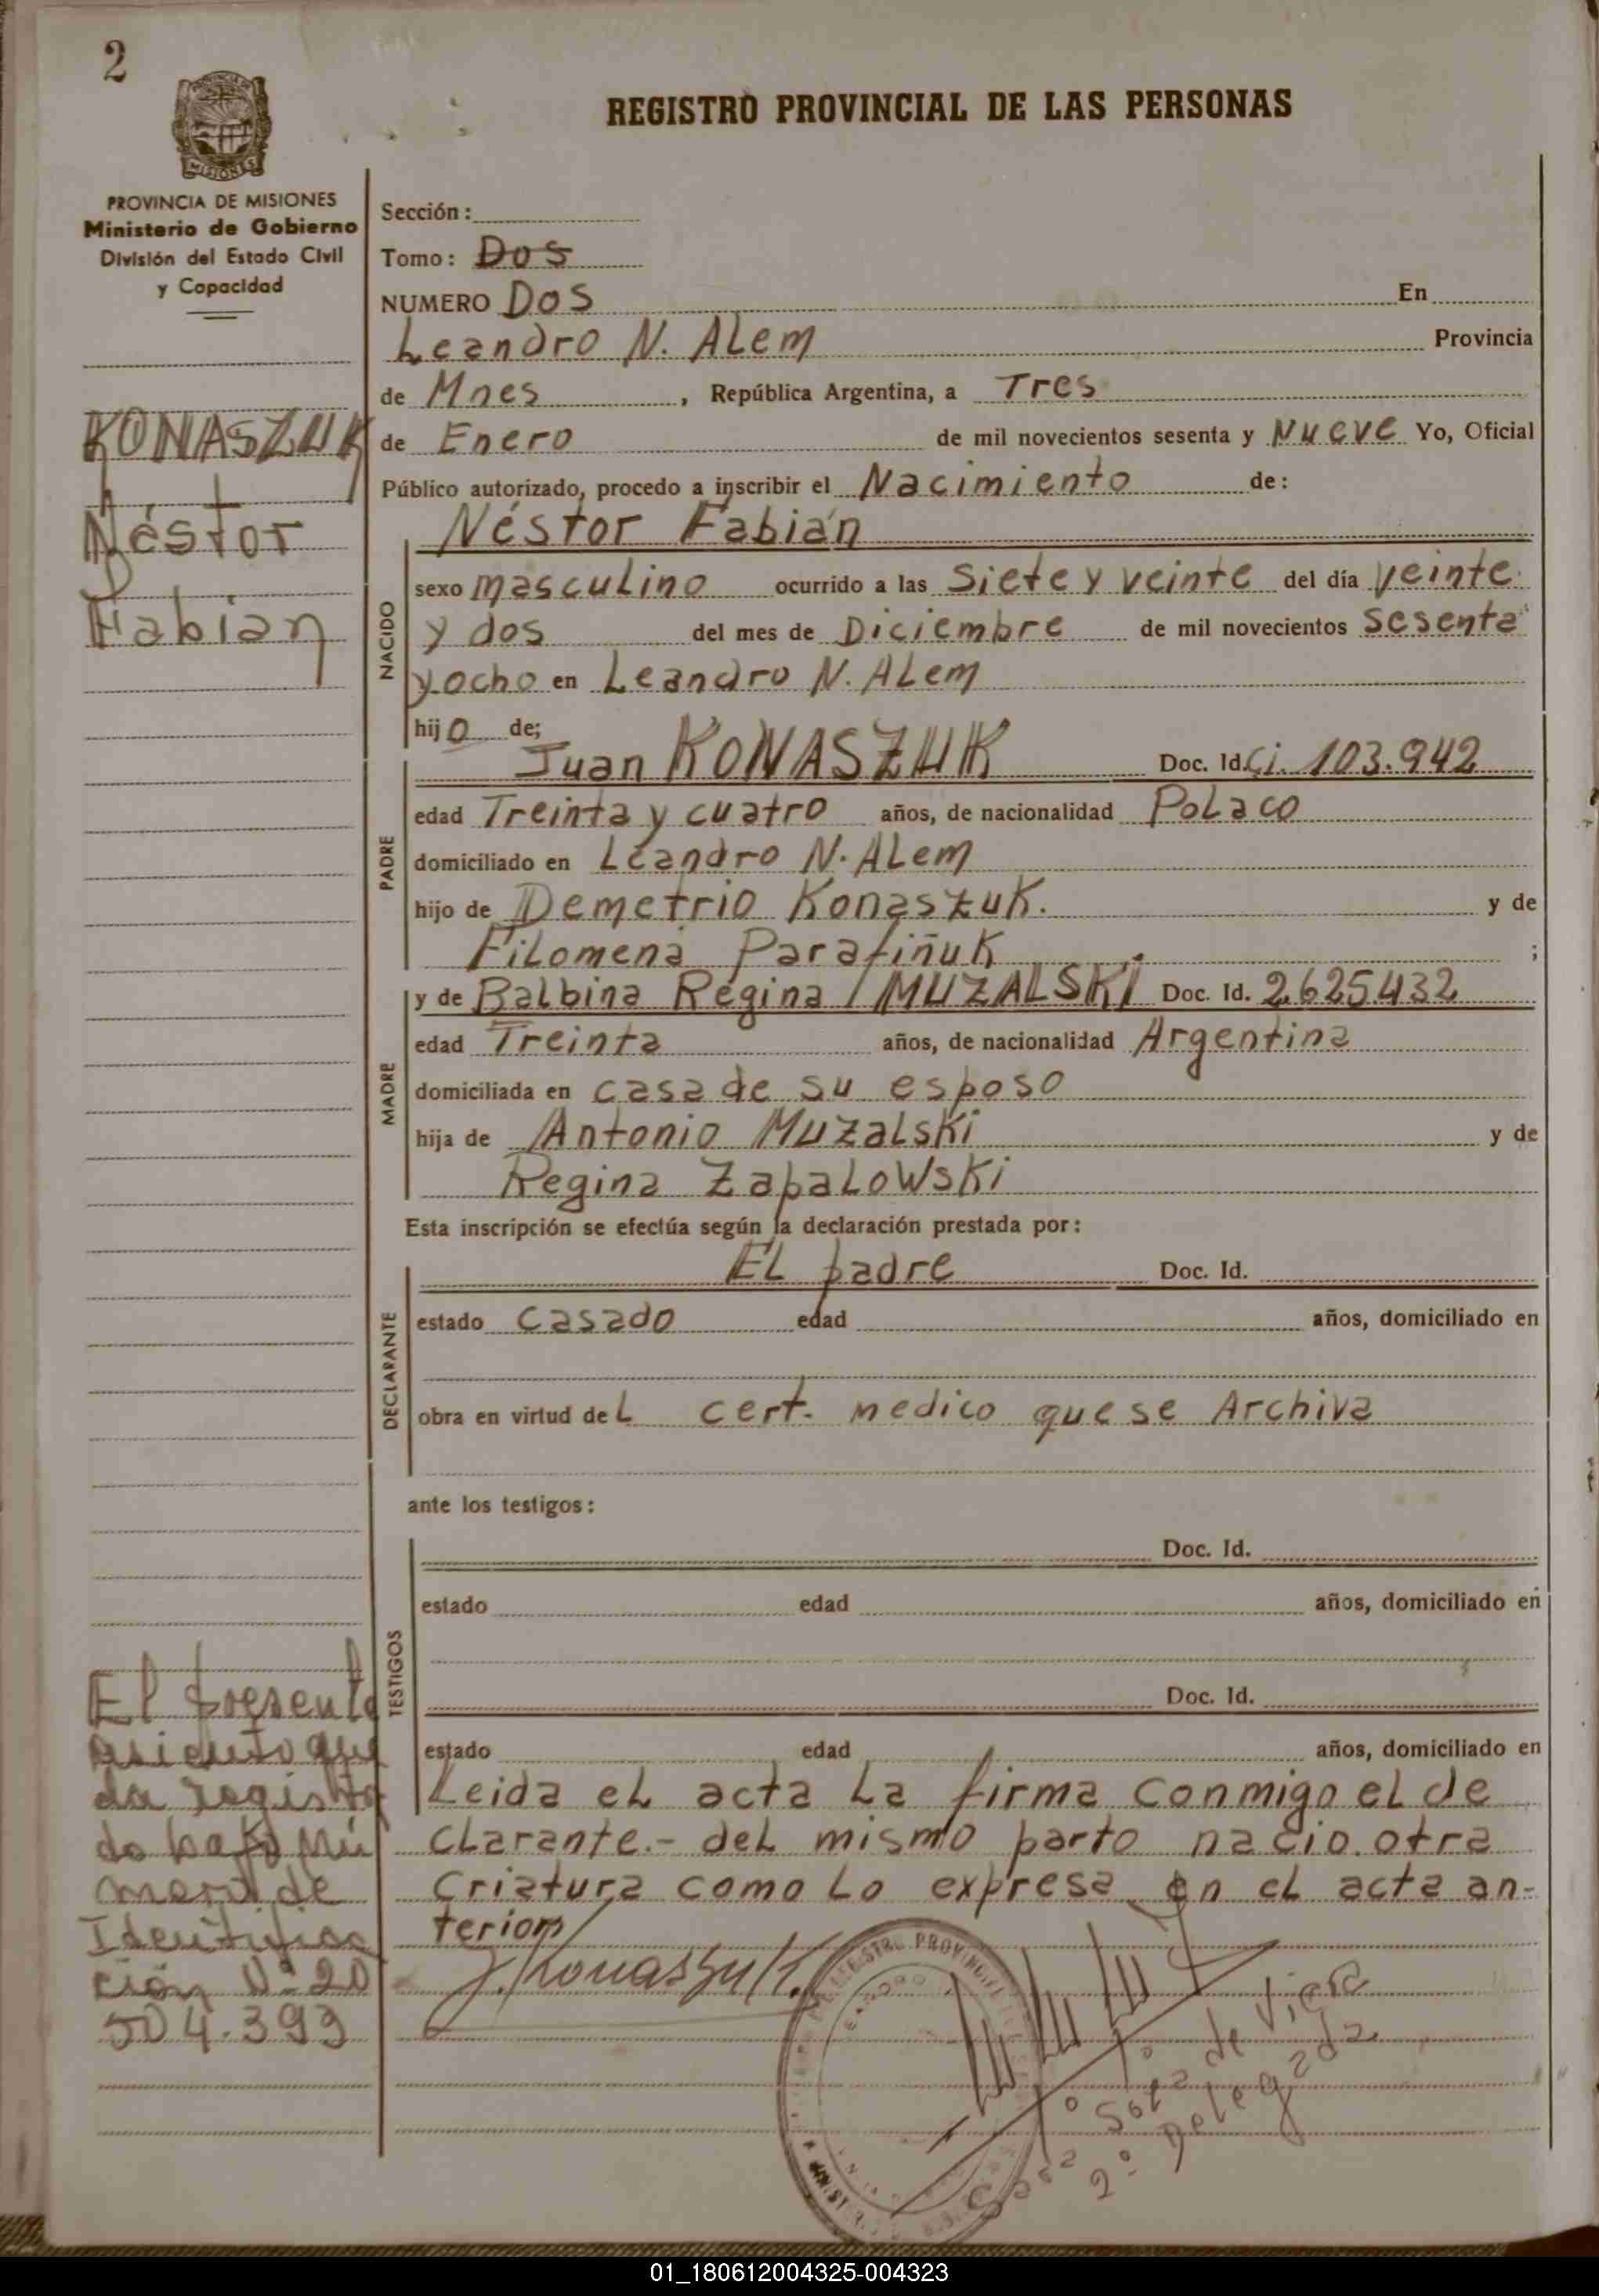 2
REGISTRO PROVINCIAL DE LAS PERSONAS
PROVINCIA DE MISIONES
Ministerio de Gobierno
División del Estado Civil
y Capacidad
KONASZUK
Néstor
Fabián
Sección:
Tomo: Dos
NUMERO Dos En
Leandro N. Alem Provincia
de Mnes, República Argentina, a Tres
de Enero de mil novecientos sesenta y Nueve Yo, Oficial
Público autorizado, procedo a inscribir el Nacimiento de:
NACIDO
Néstor Fabián
sexo masculino ocurrido a las Siete y veinte del día veinte
y dos del mes de Diciembre de mil novecientos sesenta
y ocho en Leandro N. Alem
hijo de;
PADRE
Juan KONASZUK Doc. Id. Ci. 103.942
edad Treinta y cuatro años, de nacionalidad Polaco
domiciliado en Leandro N. Alem
hijo de Demetrio Konaszuk. y de
Filomena Parafiñuk ;
MADRE
y de Balbina Regina MUZALSKI Doc. Id. 2.625432
edad Treinta años, de nacionalidad Argentina
domiciliada en casa de su esposo
hija de Antonio Muzalski y de
Regina Zapalowski
Esta inscripción se efectúa según la declaración prestada por:
DECLARANTE
El padre Doc. Id.
estado casado edad años, domiciliado en
obra en virtud del cert. medico que se Archiva
ante los testigos:
TESTIGOS
Doc. Id.
estado edad años, domiciliado en
Doc. Id.
estado edad años, domiciliado en
Leida el acta La firma conmigo el de
clarante.- del mismo parto nacio otra
criatura como lo expresa en el acta an-
terior
J. Konaszuk
El presente
asiento que
da registra
do bajo Nú
mero de
Identifica
ción N° 20
504.393
REGISTRO PROVINCIAL
Sosa de Viera
2° Delegada
01_180612004325-004323